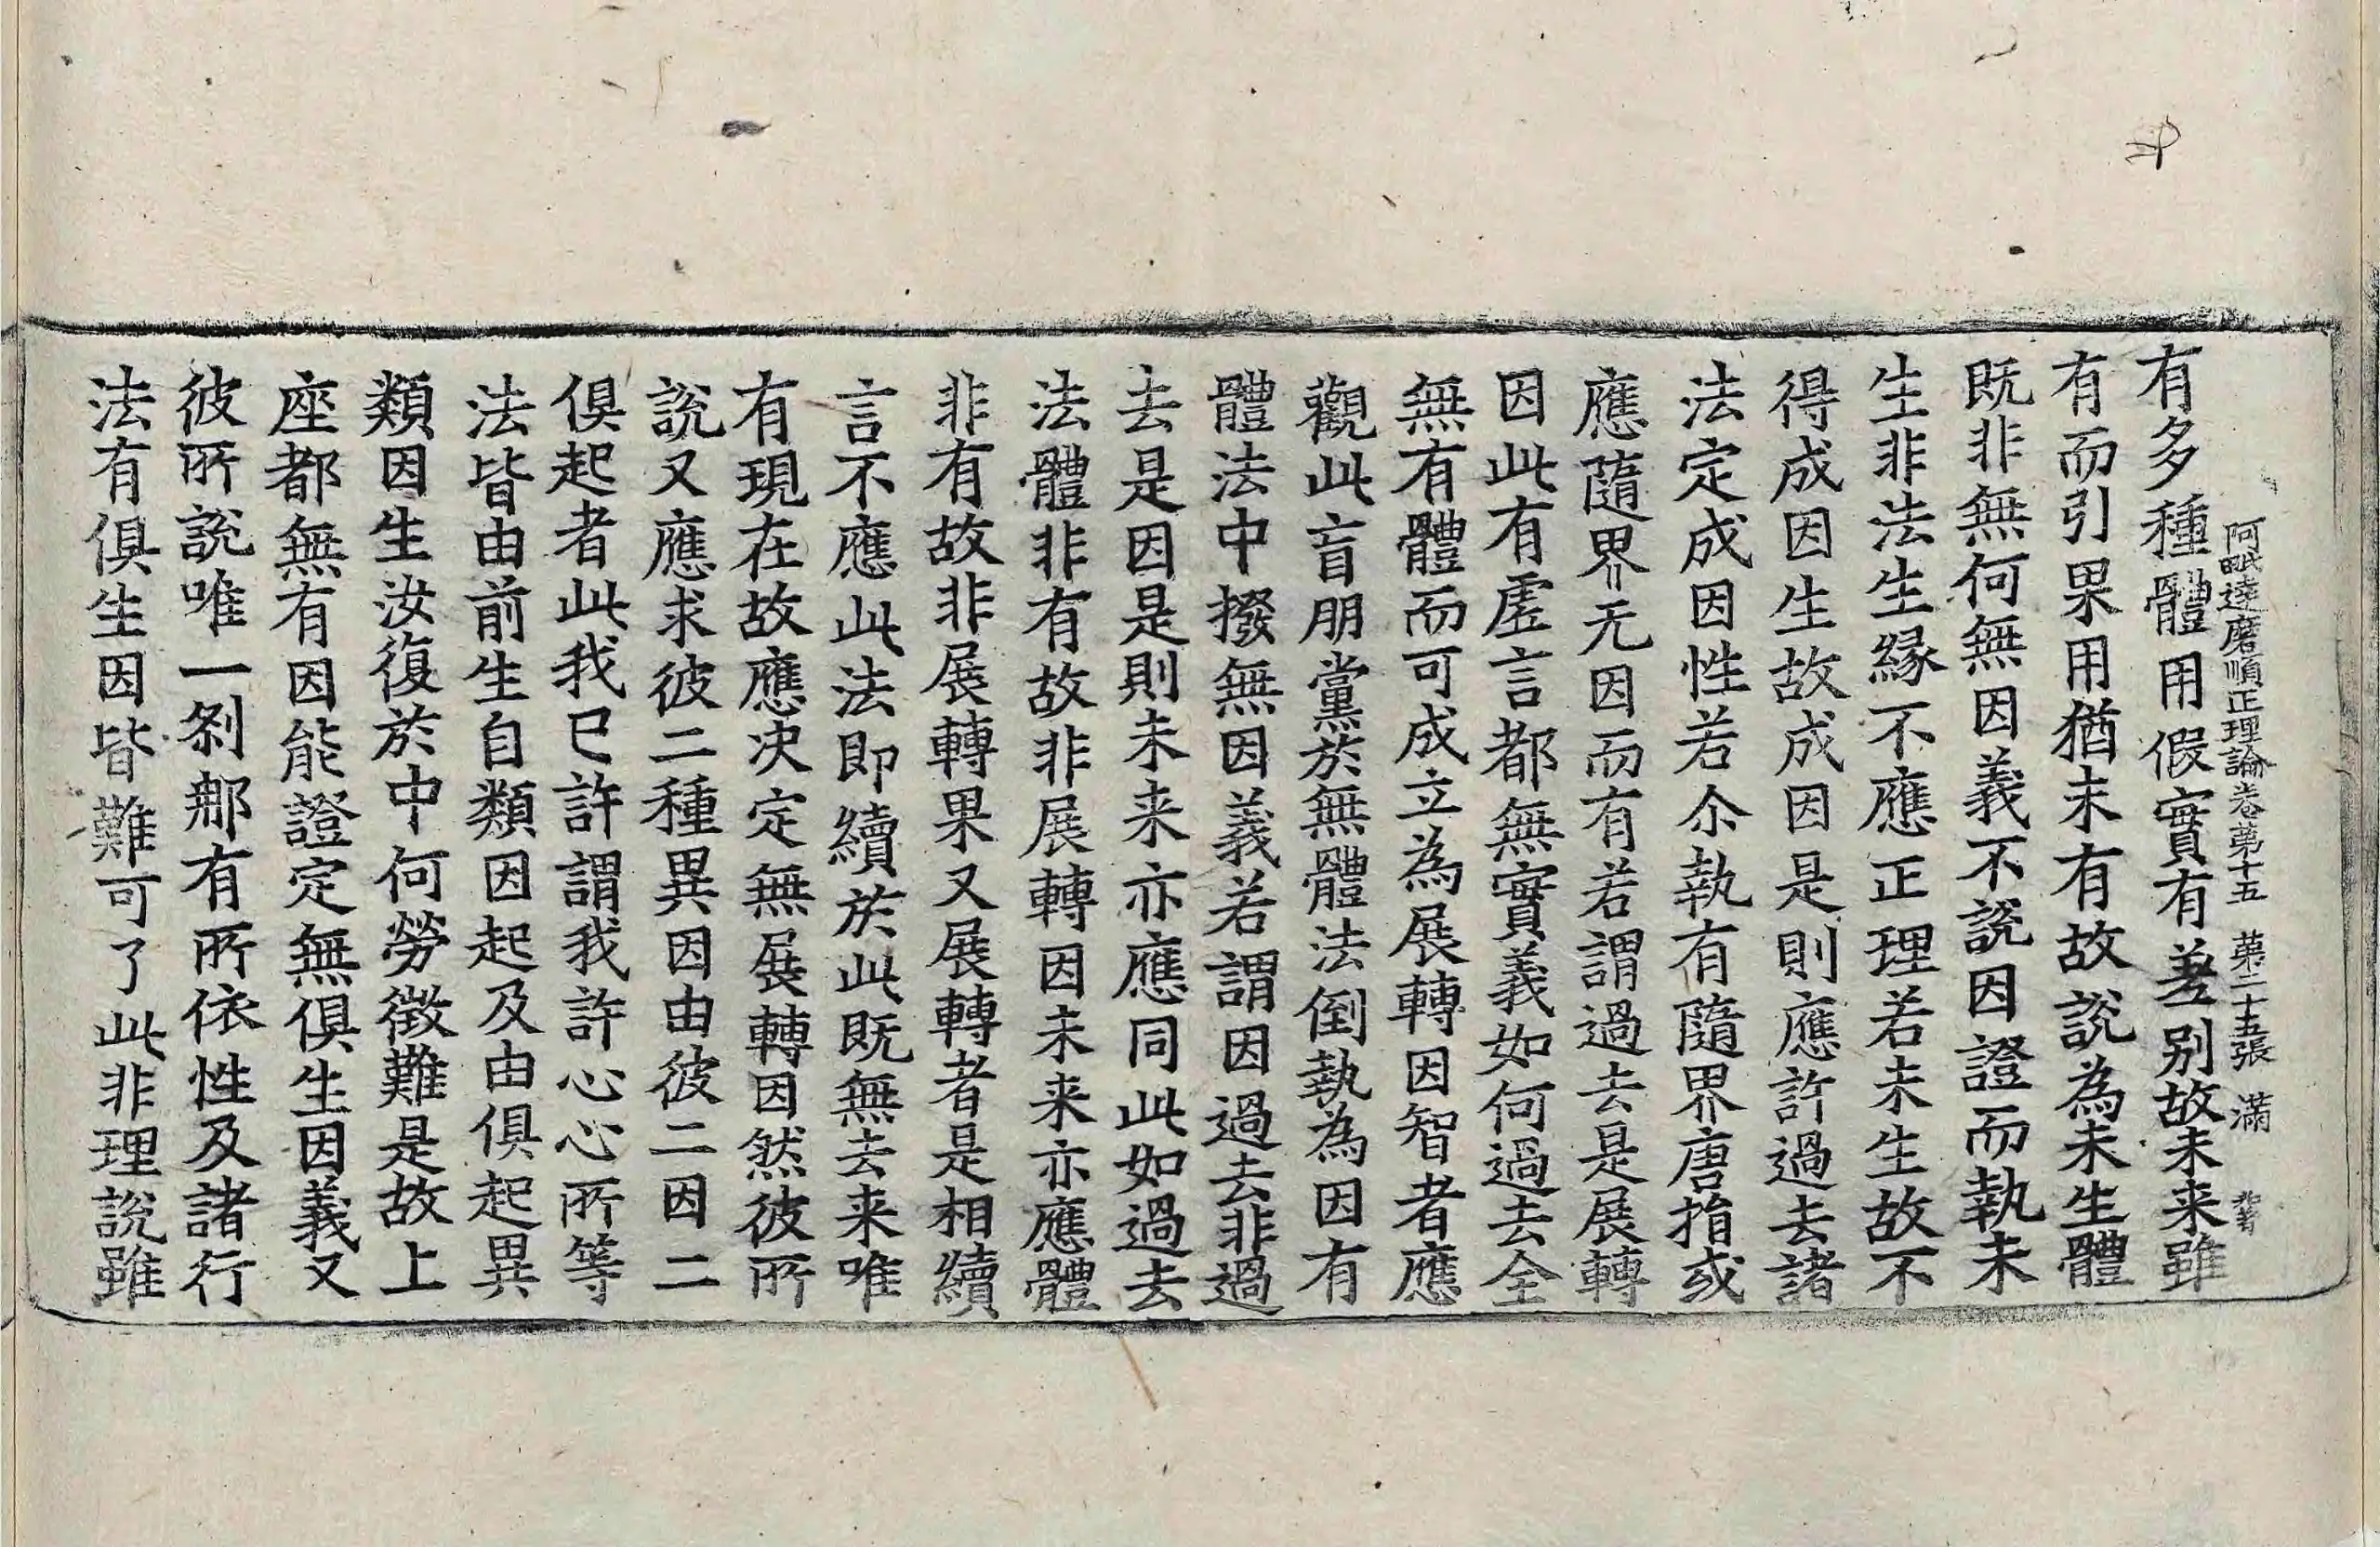 阿毗達磨順正理論卷苐十五　苐二十五張　滿
有多種體用假實有差別故未来雖
有而引果用猶未有故說為未生體
既非無何無因義不說因證而執未
生非法生緣不應正理若未生故不
得成因生故成因是則應許過去諸
法定成因性若尒執有隨界唐捐或
應隨界无因而有若謂過去是展轉
因此有虛言都無實義如何過去全
無有體而可成立為展轉因智者應
觀此盲朋黨於無體法倒執為因有
體法中撥無因義若謂因過去非過
去是因是則未来亦應同此如過去
法體非有故非展轉因未来亦應體
非有故非展轉果又展轉者是相續
言不應此法即續於此既無去来唯
有現在故應决定無展轉因然彼所
說又應求彼二種異因由彼二因二
俱起者此我已許謂我許心心所等
法皆由前生自類因起及由俱起異
類因生汝復於中何勞徵難是故上
座都無有因能證定無俱生因義又
彼所說唯一剎那有所依性及諸行
法有俱生因皆難可了此非理說雖